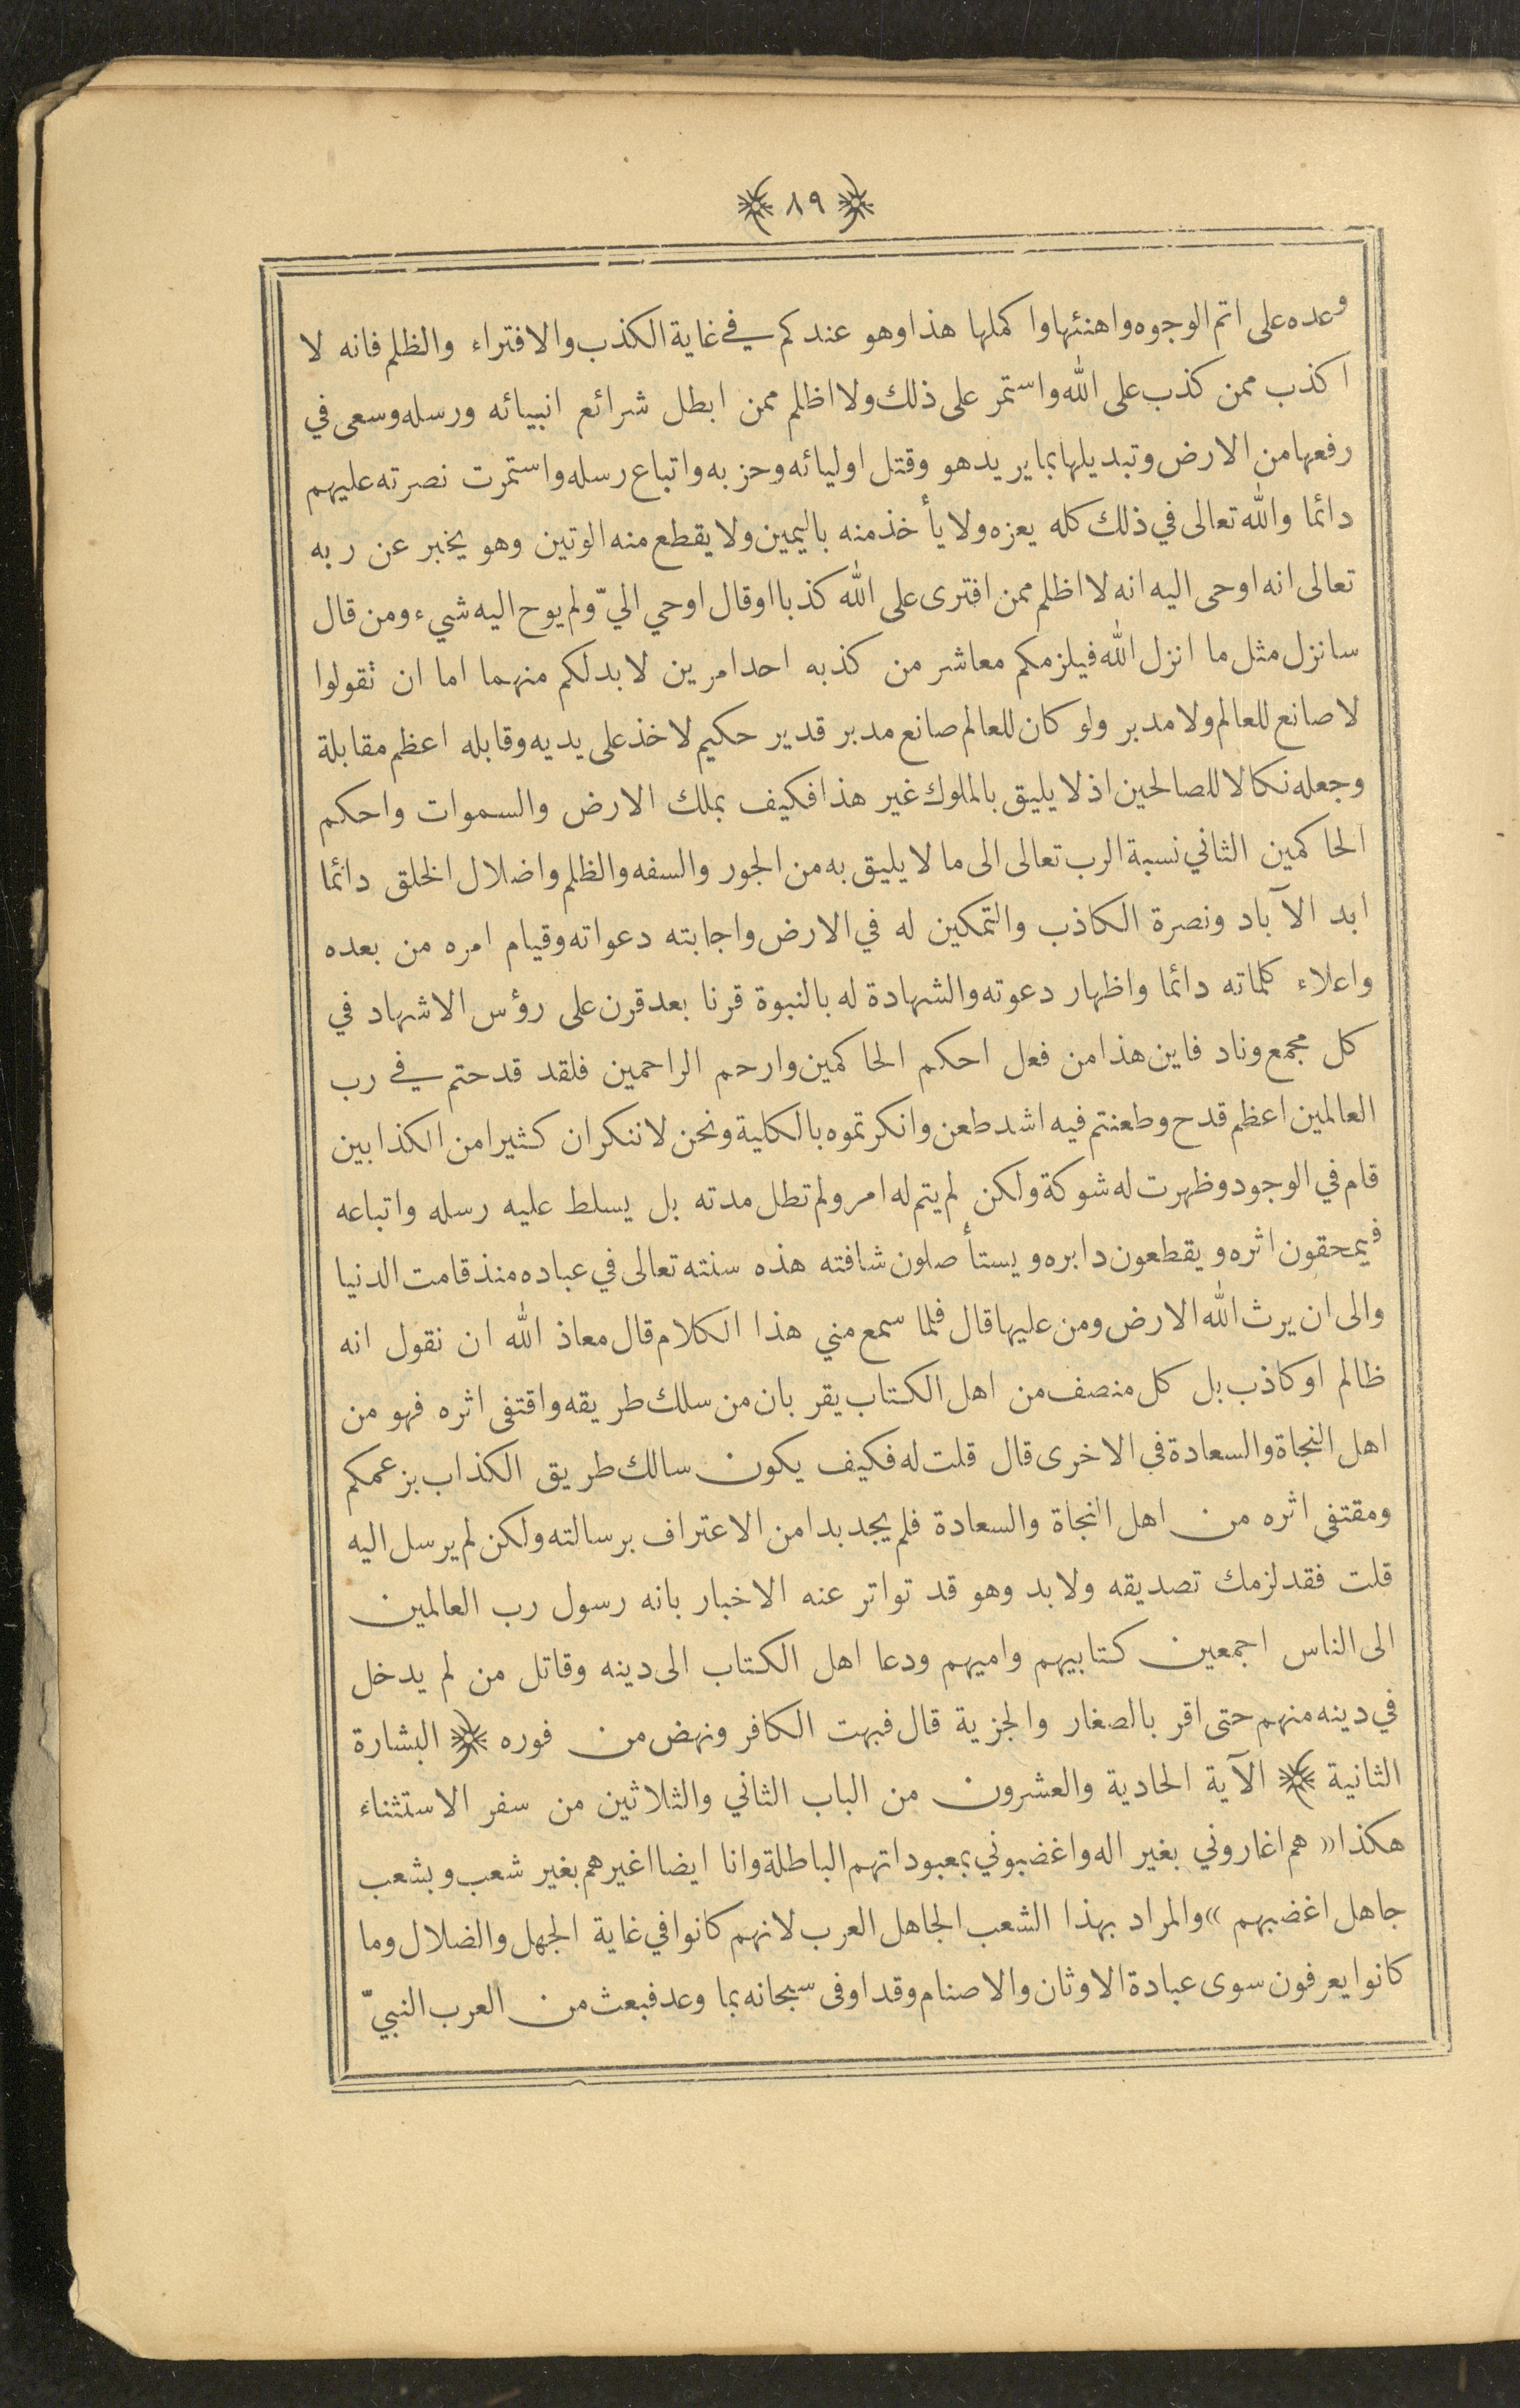 ﴿ ٨٩ ﴾
وعده على اتم الوجوه واهنئها واكملها هذا وهو عندكم في غاية الكذب والافتراء والظلم فانه لا
اكذب ممن كذب على الله واستمر على ذلك ولا اظلم ممن ابطل شرائع انبيائه ورسله وسعى في
رفعها من الارض وتبديلها بما يريد هو وقتل اوليائه وحزبه واتباع رسله واستمرت نصرته عليهم
دائما والله تعالى في ذلك كله يعزه ولا يأخذ منه باليمين ولا يقطع منه الوتين وهو يخبر عن ربه
تعالى انه اوحى اليه انه لا اظلم ممن افترى على الله كذبا او قال اوحي اليّ ولم يوح اليه شيء ومن قال
سانزل مثل ما انزل الله فيلزمكم معاشر من كذبه احد امرين لا بد لكم منهما اما ان تقولوا
لا صانع للعالم ولا مدبر ولو كان للعالم صانع مدبر قدير حكيم لاخذ على يديه وقابله اعظم مقابلة
وجعله نكالا للصالحين اذ لا يليق بالملوك غير هذا فكيف بملك الارض والسموات واحكم
الحاكمين الثاني نسبة الرب تعالى الى ما لا يليق به من الجور والسفه والظلم واضلال الخلق دائما
ابد الآباد ونصرة الكاذب والتمكين له في الارض واجابته دعواته وقيام امره من بعده
واعلاء كلماته دائما واظهار دعوته والشهادة له بالنبوة قرنا بعد قرن على رؤس الاشهاد في
كل مجمع وناد فاين هذا من فعل احكم الحاكمين وارحم الراحمين فلقد قدحتم في رب
العالمين اعظم قدح وطعنتم فيه اشد طعن وانكرتموه بالكلية ونحن لا ننكر ان كثيرا من الكذابين
قام في الوجود وظهرت له شوكة ولكن لم يتم له امر ولم تطل مدته بل يسلط عليه رسله واتباعه
فيمحقون اثره ويقطعون دابره ويستأصلون شافته هذه سنته تعالى في عباده منذ قامت الدنيا
والى ان يرث الله الارض ومن عليها قال فلما سمع مني هذا الكلام قال معاذ الله ان نقول انه
ظالم او كاذب بل كل منصف من اهل الكتاب يقر بان من سلك طريقه واقتفى اثره فهو من
اهل النجاة والسعادة في الاخرى قال قلت له فكيف يكون سالك طريق الكذاب بزعمكم
ومقتفى اثره من اهل النجاة والسعادة فلم يجد بدا من الاعتراف برسالته ولكن لم يرسل اليه
قلت فقد لزمك تصديقه ولا بد وهو قد تواتر عنه الاخبار بانه رسول رب العالمين
الى الناس اجمعين كتابيهم واميهم ودعا اهل الكتاب الى دينه وقاتل من لم يدخل
في دينه منهم حتى اقر بالصغار والجزية قال فبهت الكافر ونهض من فوره ﴿ البشارة
الثانية ﴾ الآية الحادية والعشرون من الباب الثاني والثلاثين من سفر الاستثناء
هكذا « هم اغاروني بغير اله واغضبوني بمعبوداتهم الباطلة وانا ايضا اغيرهم بغير شعب وبشعب
جاهل اغضبهم » والمراد بهذا الشعب الجاهل العرب لانهم كانوا في غاية الجهل والضلال وما
كانوا يعرفون سوى عبادة الاوثان والاصنام وقد اوفى سبحانه بما وعد فبعث من العرب النبيّ